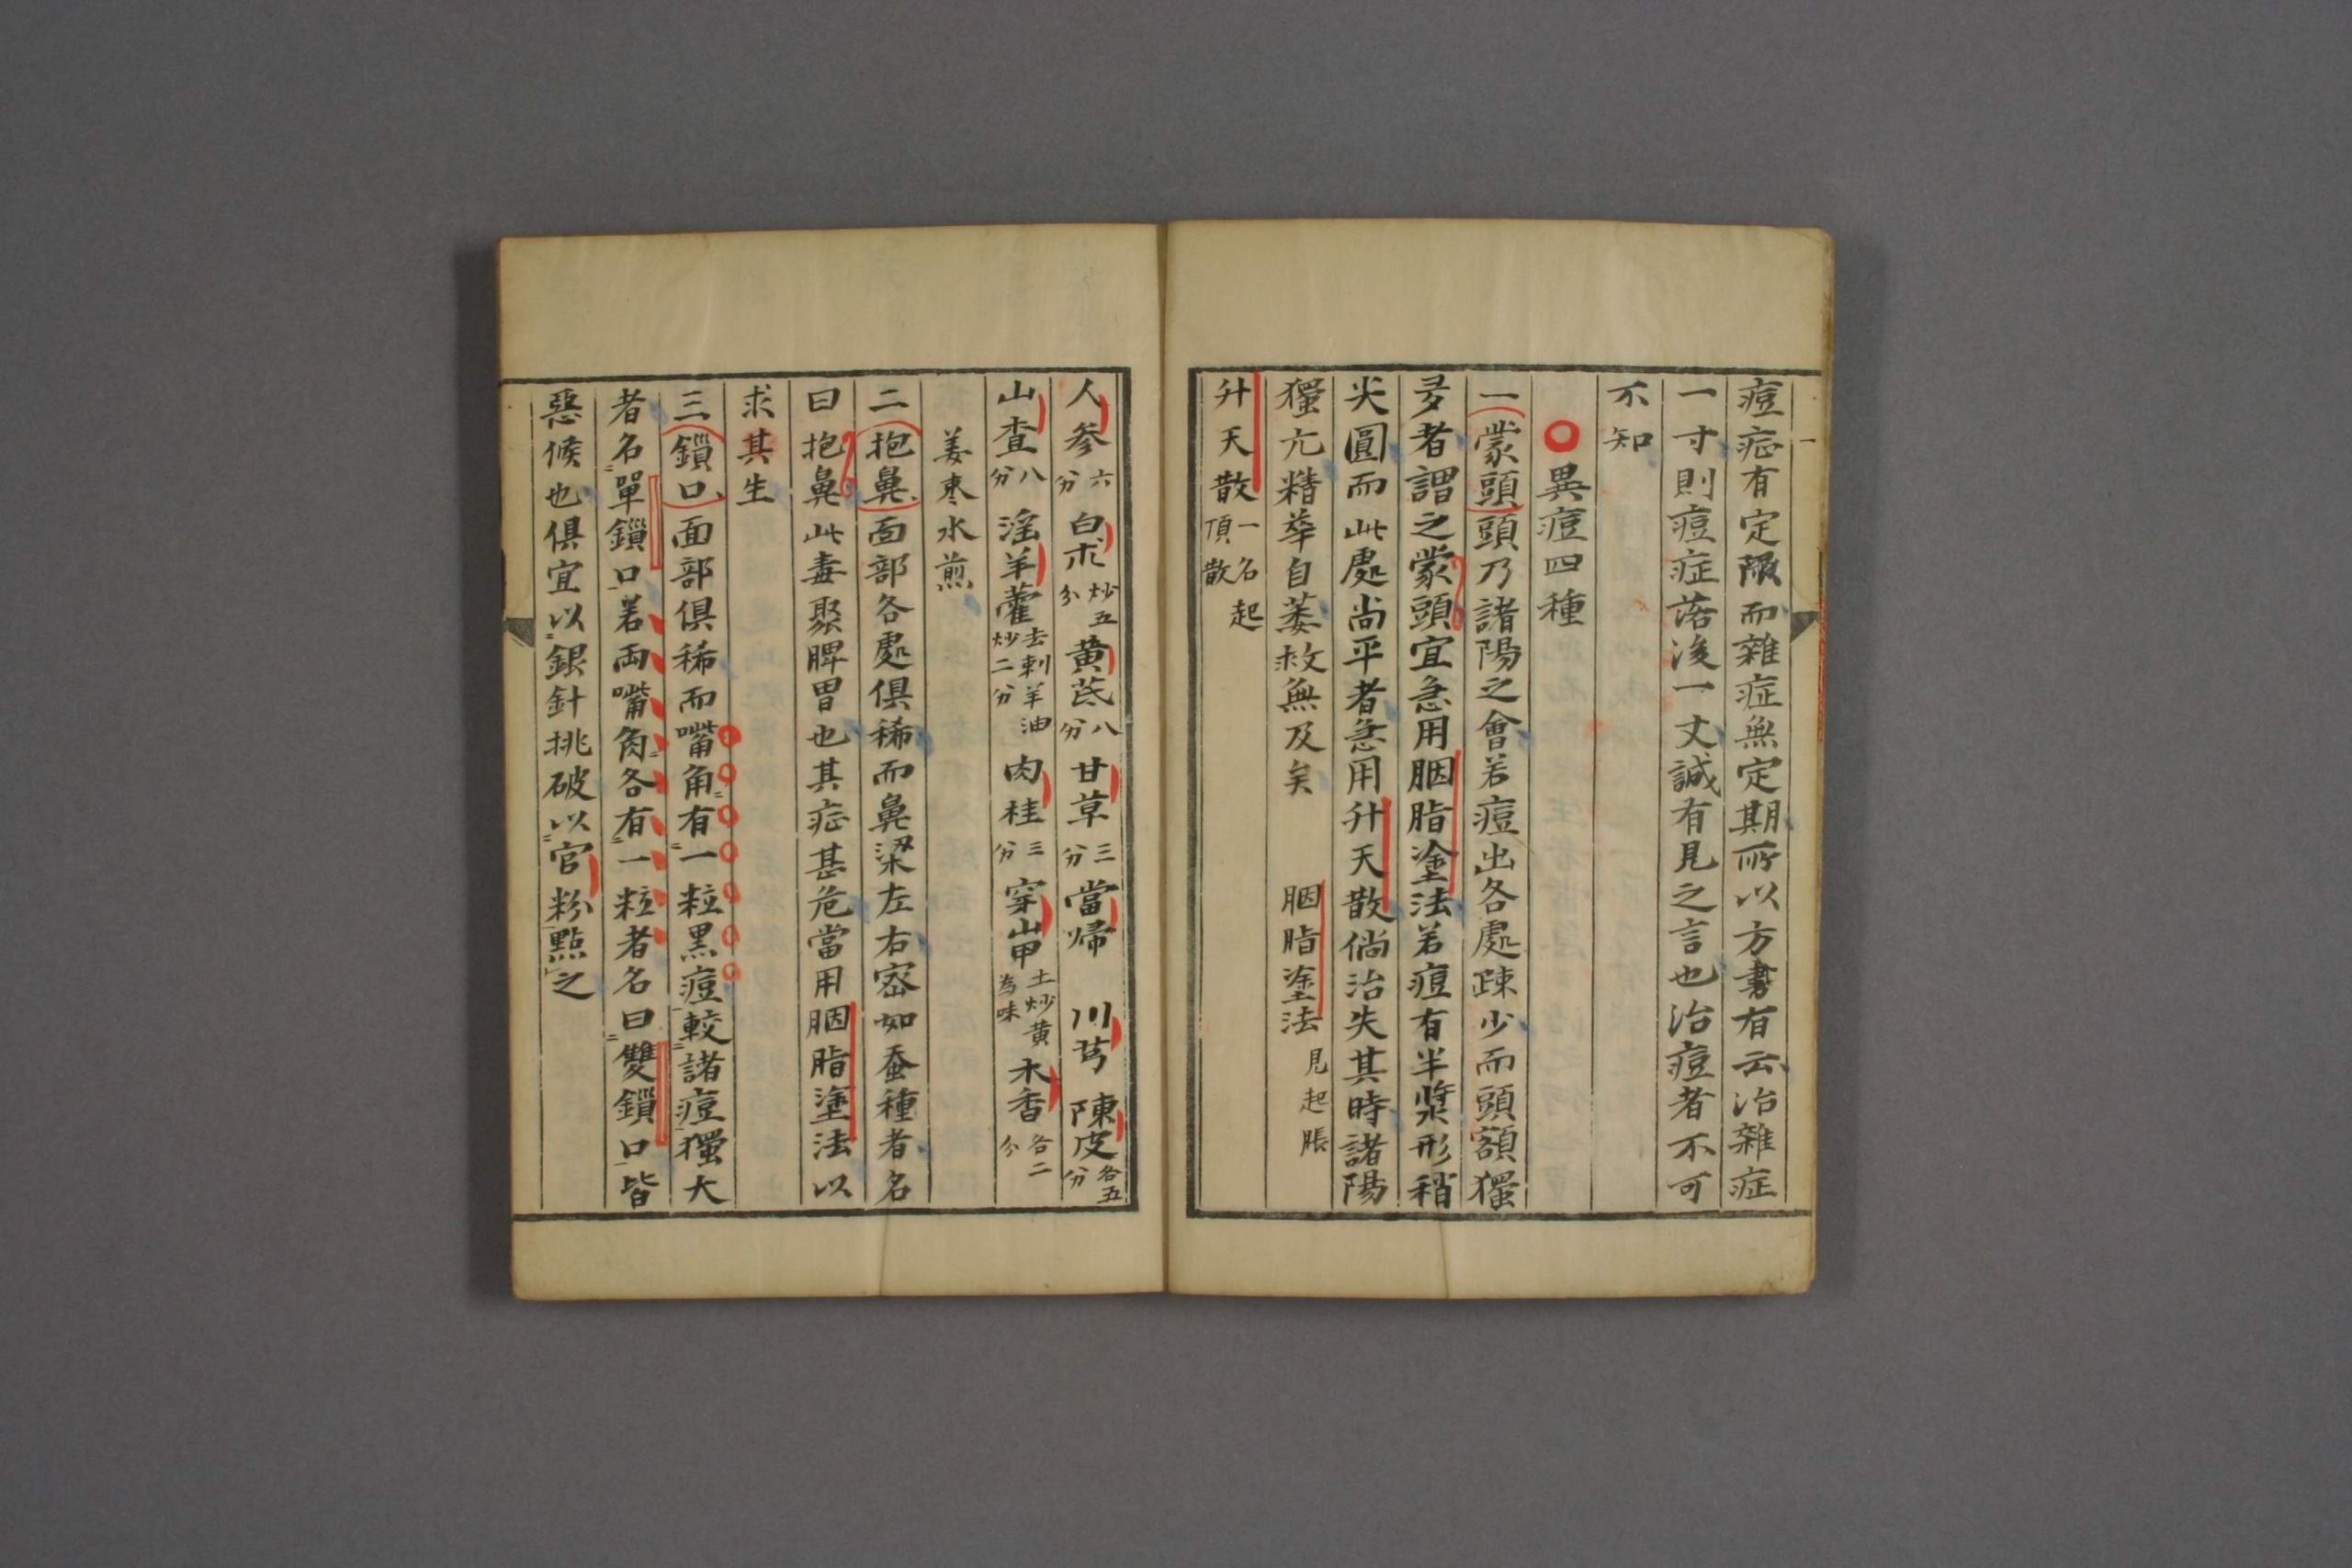 痘症有定限而雜症無定期所以方書有云治雜症
一寸則痘症落後一丈誠有見之言也治痘者不可
不知
異痘四種
一蒙頭頭乃諸陽之會若痘出各處疎少而頭額獨
多者謂之蒙頭宜急用胭脂塗法若痘有半漿形稍
尖圓而此處尚平者急用升天散倘治失其時諸陽
獨亢精華自萎救無及矣 胭脂塗法見起脹
升天散一名起頂散
人參六分 白朮炒五分 黄芪八分 甘草三分 當歸 川芎 陳皮各五分
山查八分 淫羊藿去刺羊油炒二分 肉桂三分 穿山甲土炒黄為味 木香各二分
姜枣水煎
二抱鼻面部各處俱稀而鼻梁左右密如蚕種者名
曰抱鼻此毒聚脾胃也其症甚危當用胭脂塗法以
求其生
三鎖口面部俱稀而嘴角有一粒黑痘較諸痘獨大
者名單鎖口若両嘴角各有一粒者名曰雙鎖口皆
惡候也俱宜以銀針挑破以官粉點之